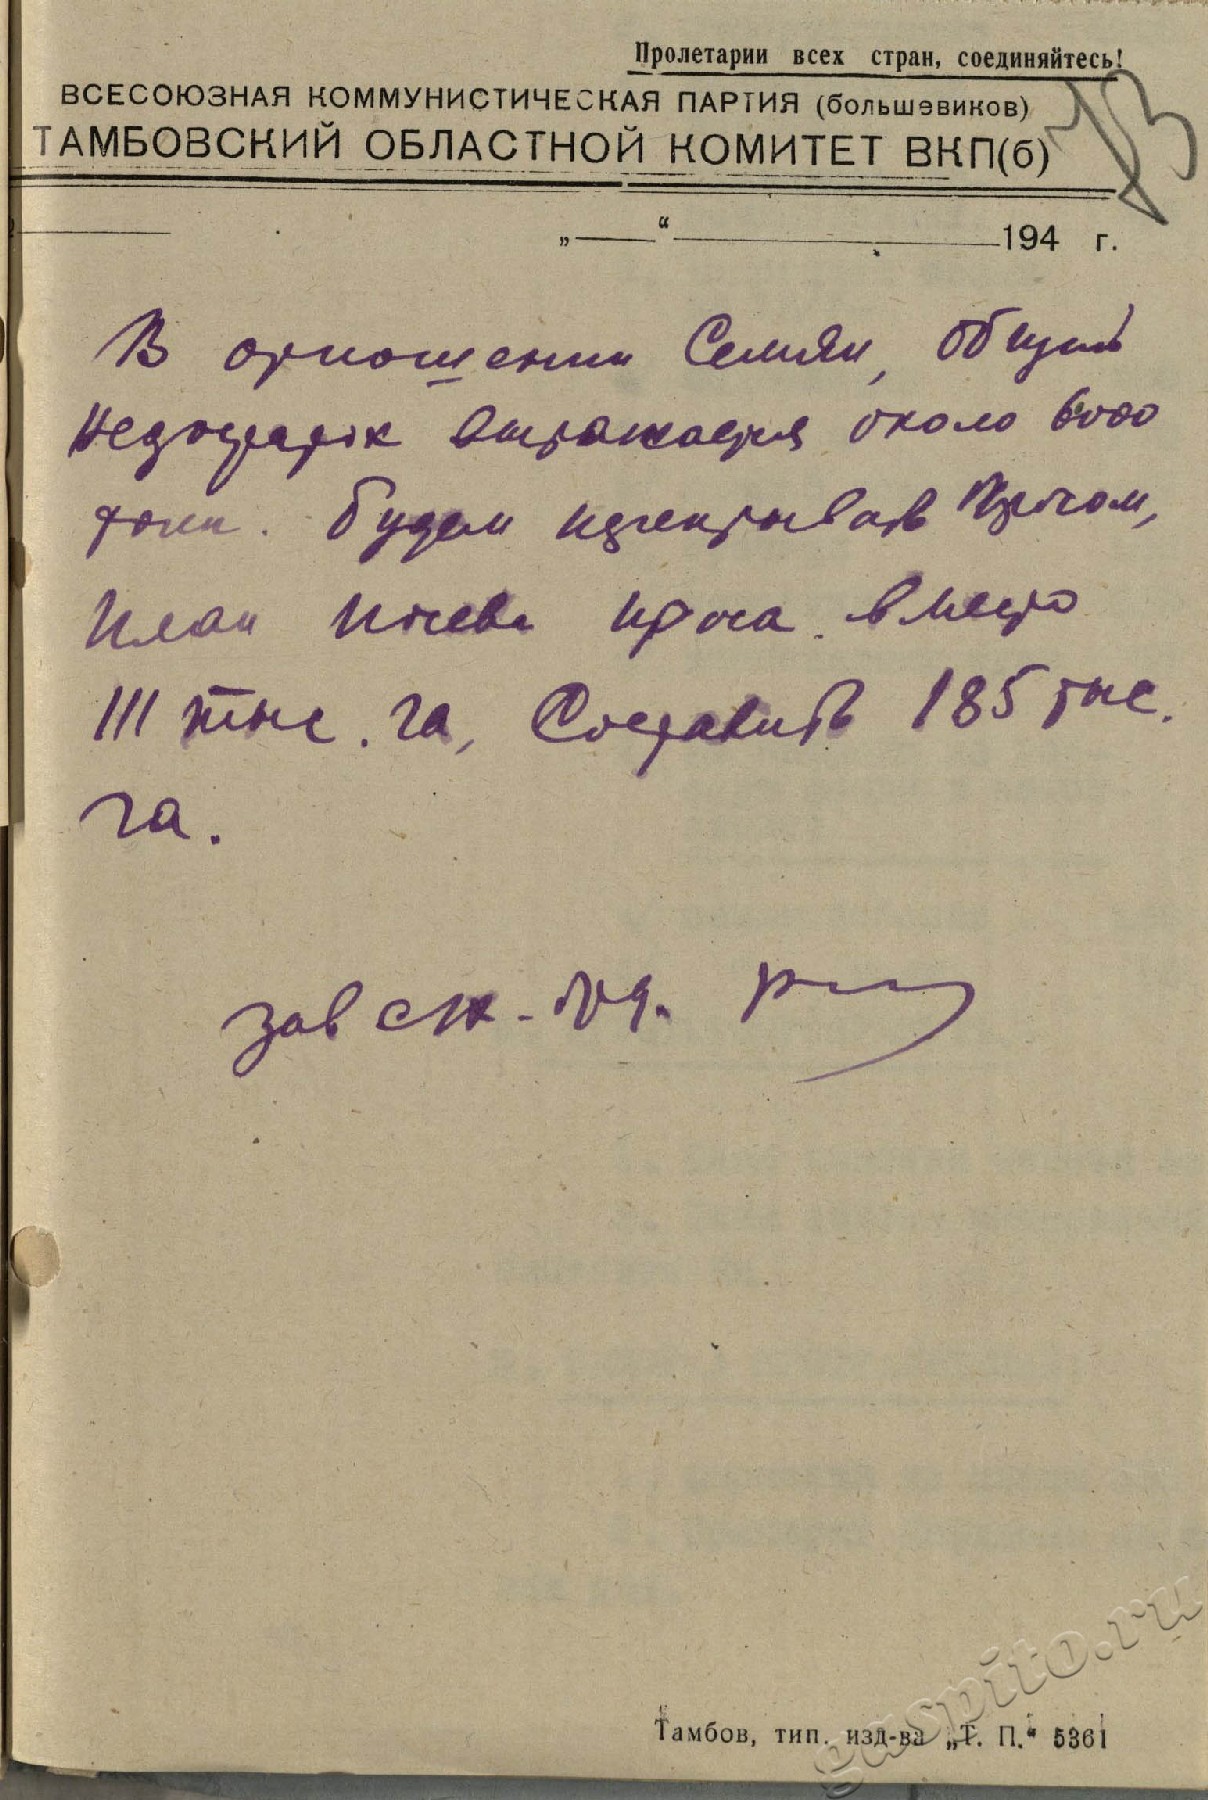 Пролетарии всех стран, соединяйтесь!
ВСЕСОЮЗНАЯ КОММУНИСТИЧЕСКАЯ ПАРТИЯ (большевиков)
ТАМБОВСКИЙ ОБЛАСТНОЙ КОМИТЕТ ВКП(б)
„ “ 194 г.
В отношении Семян, общий
недостаток выражается около 6000
тонн. Будем перекрывать просом,
План посева проса вместо
111 тыс. га, Составить 185 тыс.
га.
Зав сх. отд.
Тамбов, тип. изд-ва „Т. П.“ 5361
gaspito.ru